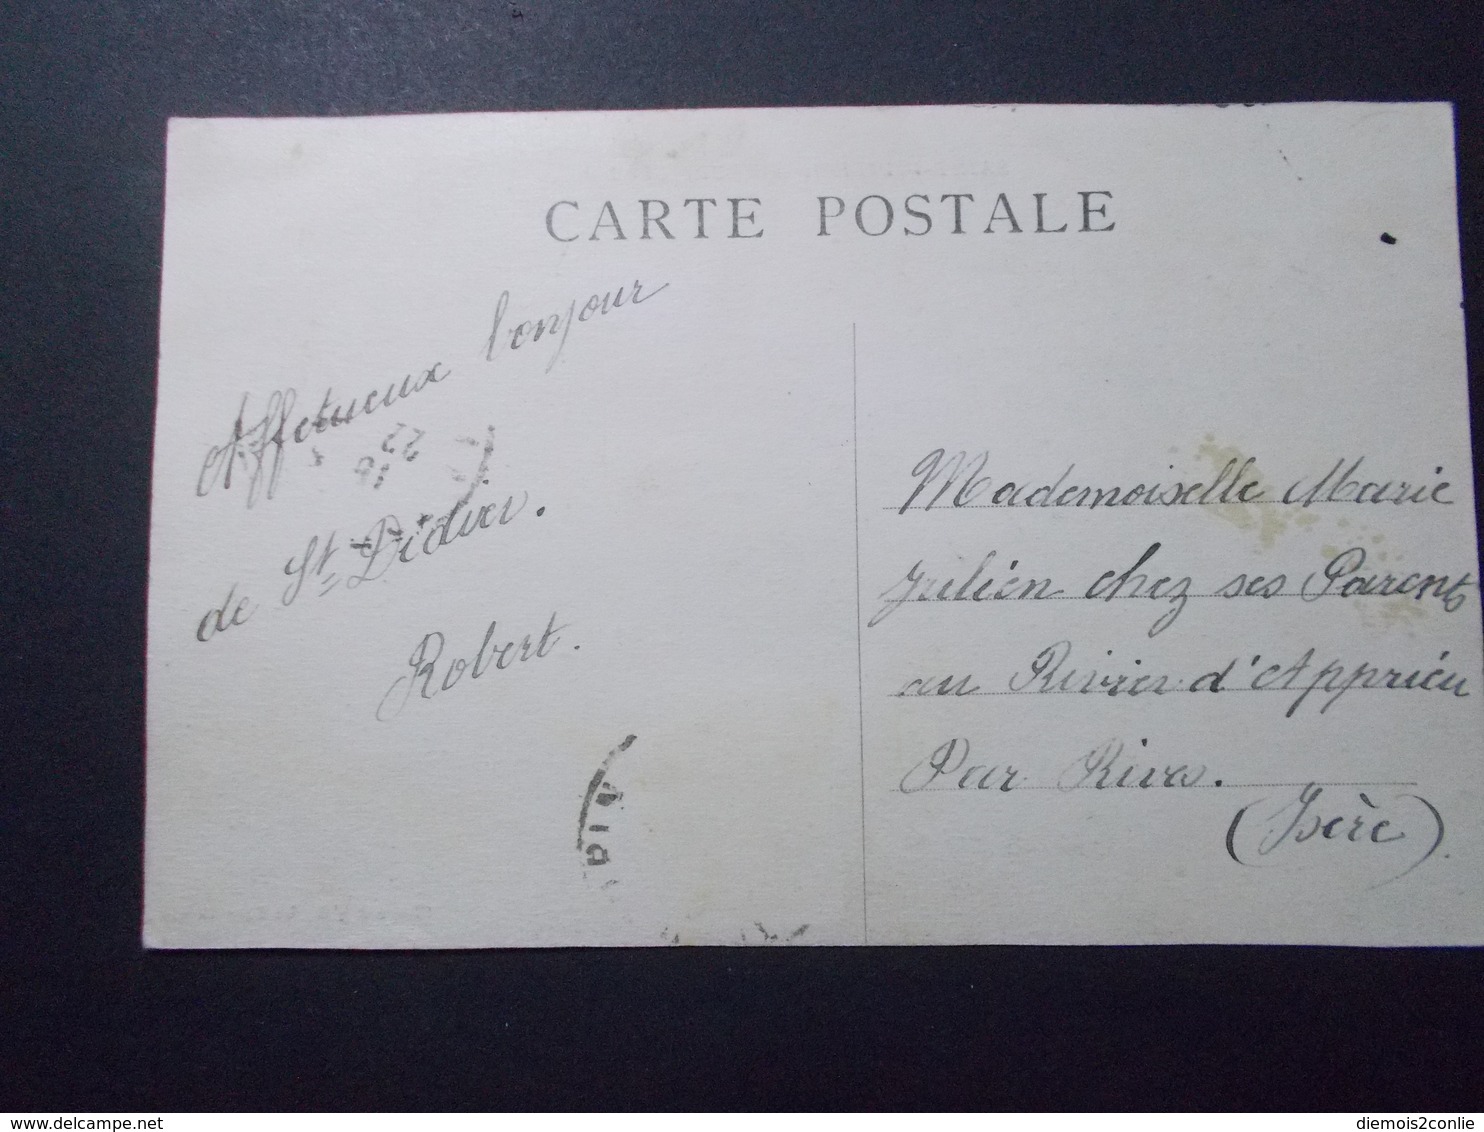 CARTE POSTALE
Affetueux bonjour
de St Didier.
Robert.
Mademoiselle Marie
Julien chez ses Parents
au Rivier d'Apprieu
Par Rives.
(Isère)
diemois2conlie